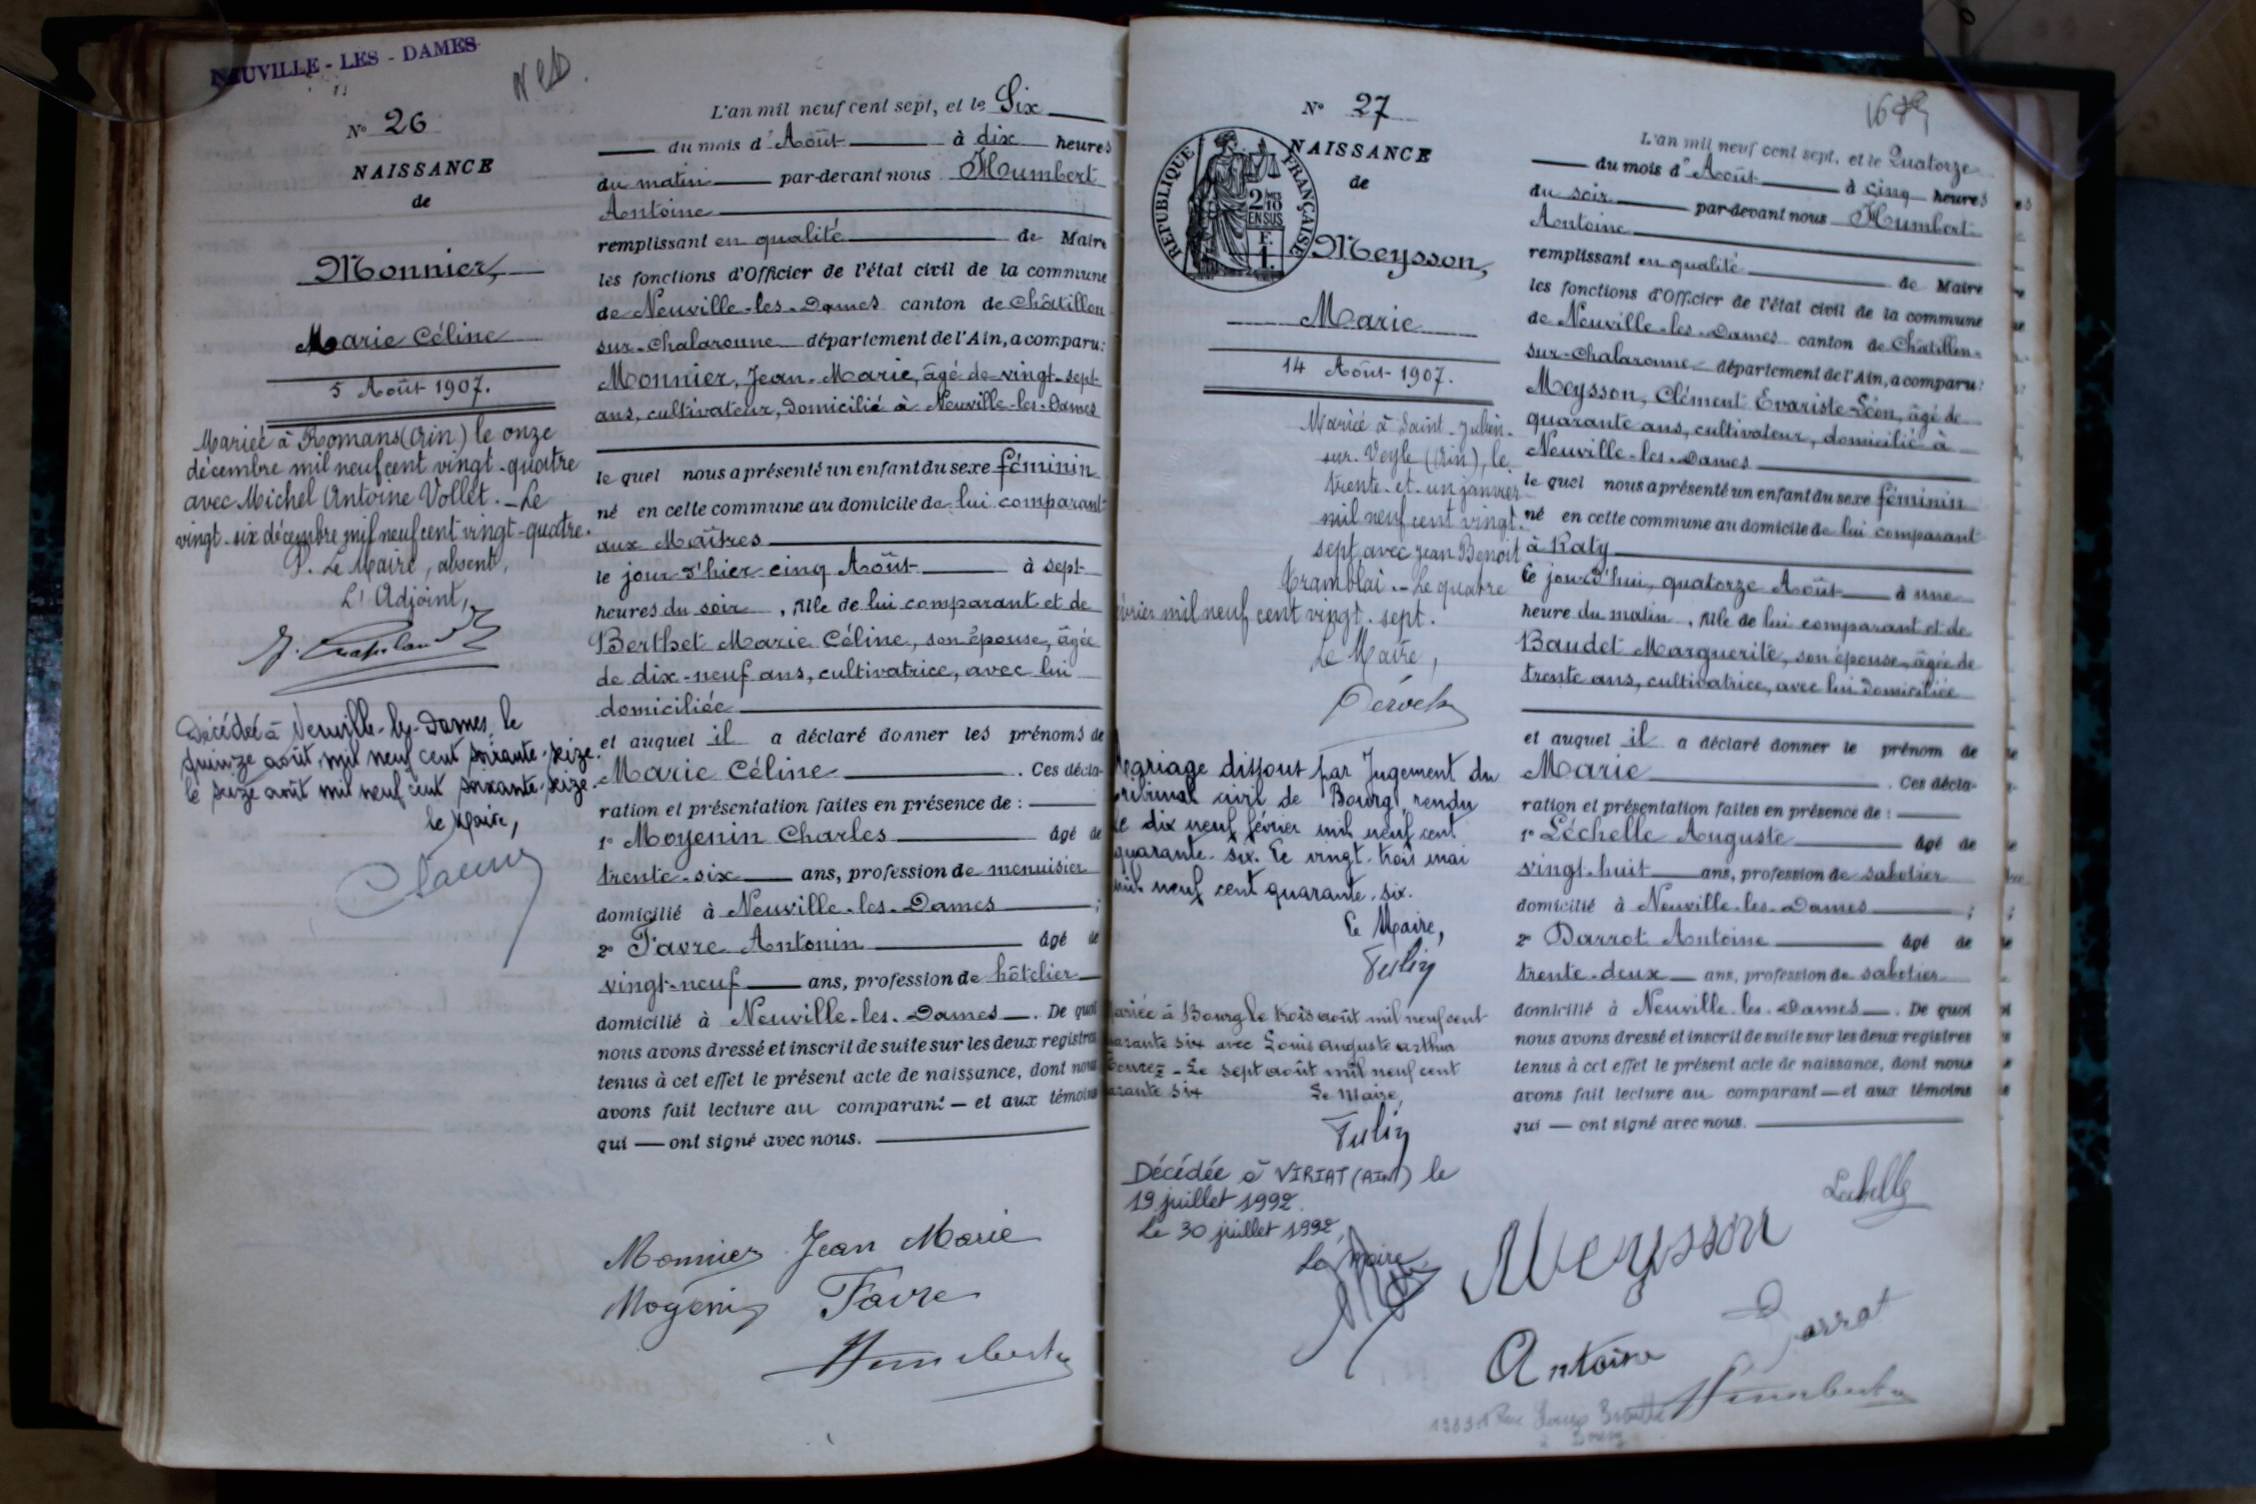 NEUVILLE - LES - DAMES
N° 26
NAISSANCE
de
Monnier,
Marie Céline
5 Août 1907.
Mariée à Romans (Ain) le onze
décembre mil neuf cent vingt-quatre
avec Michel Antoine Vollet. - Le
vingt-six décembre mil neuf cent vingt-quatre.
P. Le Maire, absent,
L'Adjoint,
Décédée à Neuville-les-Dames, le
quinze août mil neuf cent soixante-seize.
le seize août mil neuf cent soixante-seize.
le Maire,
L'an mil neuf cent sept, et le Six
du mois d'Août à dix heures
du matin par-devant nous Humbert
Antoine
remplissant en qualité de Maire
les fonctions d'Officier de l'état civil de la commune
de Neuville-les-Dames canton de Châtillon
sur-Chalaronne département de l'Ain, a comparu:
Monnier, Jean-Marie, âgé de vingt-sept
ans, cultivateur, domicilié à Neuville-les-Dames
le quel nous a présenté un enfant du sexe féminin
né en cette commune au domicile de lui comparant
aux Maîtres
le jour d'hier cinq Août à sept
heures du soir, fille de lui comparant et de
Berthet Marie Céline, son épouse, âgée
de dix-neuf ans, cultivatrice, avec lui
domiciliée
et auquel il a déclaré donner les prénoms de
Marie Céline. Ces décla-
ration et présentation faites en présence de :
1° Moyenin Charles âgé de
trente-six ans, profession de menuisier
domicilié à Neuville-les-Dames ;
2° Favre Antonin âgé de
vingt-neuf ans, profession de hôtelier
domicilié à Neuville-les-Dames. De quoi
nous avons dressé et inscrit de suite sur les deux registres
tenus à cet effet le présent acte de naissance, dont nous
avons fait lecture au comparant — et aux témoins
qui — ont signé avec nous.
Monnier Jean Marie
Favre
Humbert
N° 27
NAISSANCE
de
RÉPUBLIQUE FRANÇAISE
2/10
EN SUS
F.
1
Meysson,
Marie
14 Août 1907.
Mariée à Saint-Julien-
sur-Veyle (Ain), le
trente-et-un janvier
mil neuf cent vingt-
sept, avec Jean Benoit
Tramblai. - Le quatre
février mil neuf cent vingt-sept.
Le Maire,
Mariage dissout par Jugement du
Tribunal civil de Bourg, rendu
le dix neuf février mil neuf cent
quarante-six. Le vingt-trois mai
mil neuf cent quarante-six.
Le Maire,
Mariée à Bourg le trois août mil neuf cent
quarante six avec Louis Auguste Arthur
- Le sept août mil neuf cent
quarante six Le Maire,
Décédée à VIRIAT (AIN) le
19 juillet 1992.
Le 30 juillet 1992,
Le Maire
L'an mil neuf cent sept, et le Quatorze
du mois d'Août à cinq heures
du soir par-devant nous Humbert
Antoine
remplissant en qualité de Maire
les fonctions d'Officier de l'état civil de la commune
de Neuville-les-Dames canton de Châtillon-
sur-Chalaronne département de l'Ain, a comparu:
Meysson, Clément Evariste Léon, âgé de
quarante ans, cultivateur, domicilié à
Neuville-les-Dames
le quel nous a présenté un enfant du sexe féminin
né en cette commune au domicile de lui comparant
à Katy
le jourd'hui, quatorze Août à une
heure du matin, fille de lui comparant et de
Baudet Marguerite, son épouse, âgée de
trente ans, cultivatrice, avec lui domiciliée
et auquel il a déclaré donner le prénom de
Marie. Ces décla-
ration et présentation faites en présence de :
1° Léchelle Auguste âgé de
vingt-huit ans, profession de sabotier
domicilié à Neuville-les-Dames ;
2° Darrot Antoine âgé de
trente-deux ans, profession de sabotier
domicilié à Neuville-les-Dames. De quoi
nous avons dressé et inscrit de suite sur les deux registres
tenus à cet effet le présent acte de naissance, dont nous
avons fait lecture au comparant — et aux témoins
qui — ont signé avec nous.
Lechelle
Meysson
Antoine Darrot
Humbert